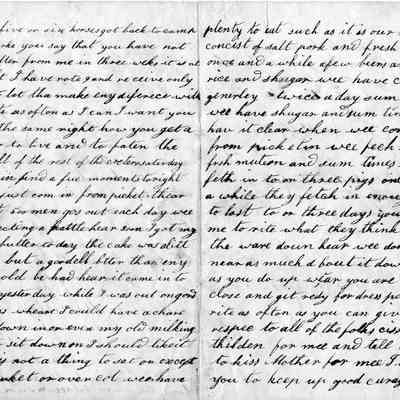 five or six horses got back to camp
you say that you have not
letter from me in three weks it is
I have rote and receive only
let tha make eny diferece with
as often as I can I want you
the same right how you get a
to live and to faten the
of the rest of the
find a few moments to night
just com in from picket I hear
or men goes out each day wee
a rattle hear sum I got my
butter to day the cake was all
but a better than eny
old be had hear it came in to
yesterday while I was out on
wheart I could have a chare
down in or even my old milking
sit down on I should like it
is not a thing to set on except
or over cot wee have
plenty to eat such as it is our
concist of salt pork and fresh
once and a while a few beens and
rice and shugar wee have
generley twice a day sum
wee have shugar and sum tim
hav it clear when wee com
from picket in wee fech
frsh mution and sum times
feth in to or three pigs
a while they fetch in enou
to last to or three days you
me to rite what they think
the ware doun hear wee don
near as much a bout it dow
as you do up whear you are
close and get redy for dress pe
rite as often as you can give
respec to all of the folks
children for mee and tell
to kiss Mother for mee I
you to keep up good